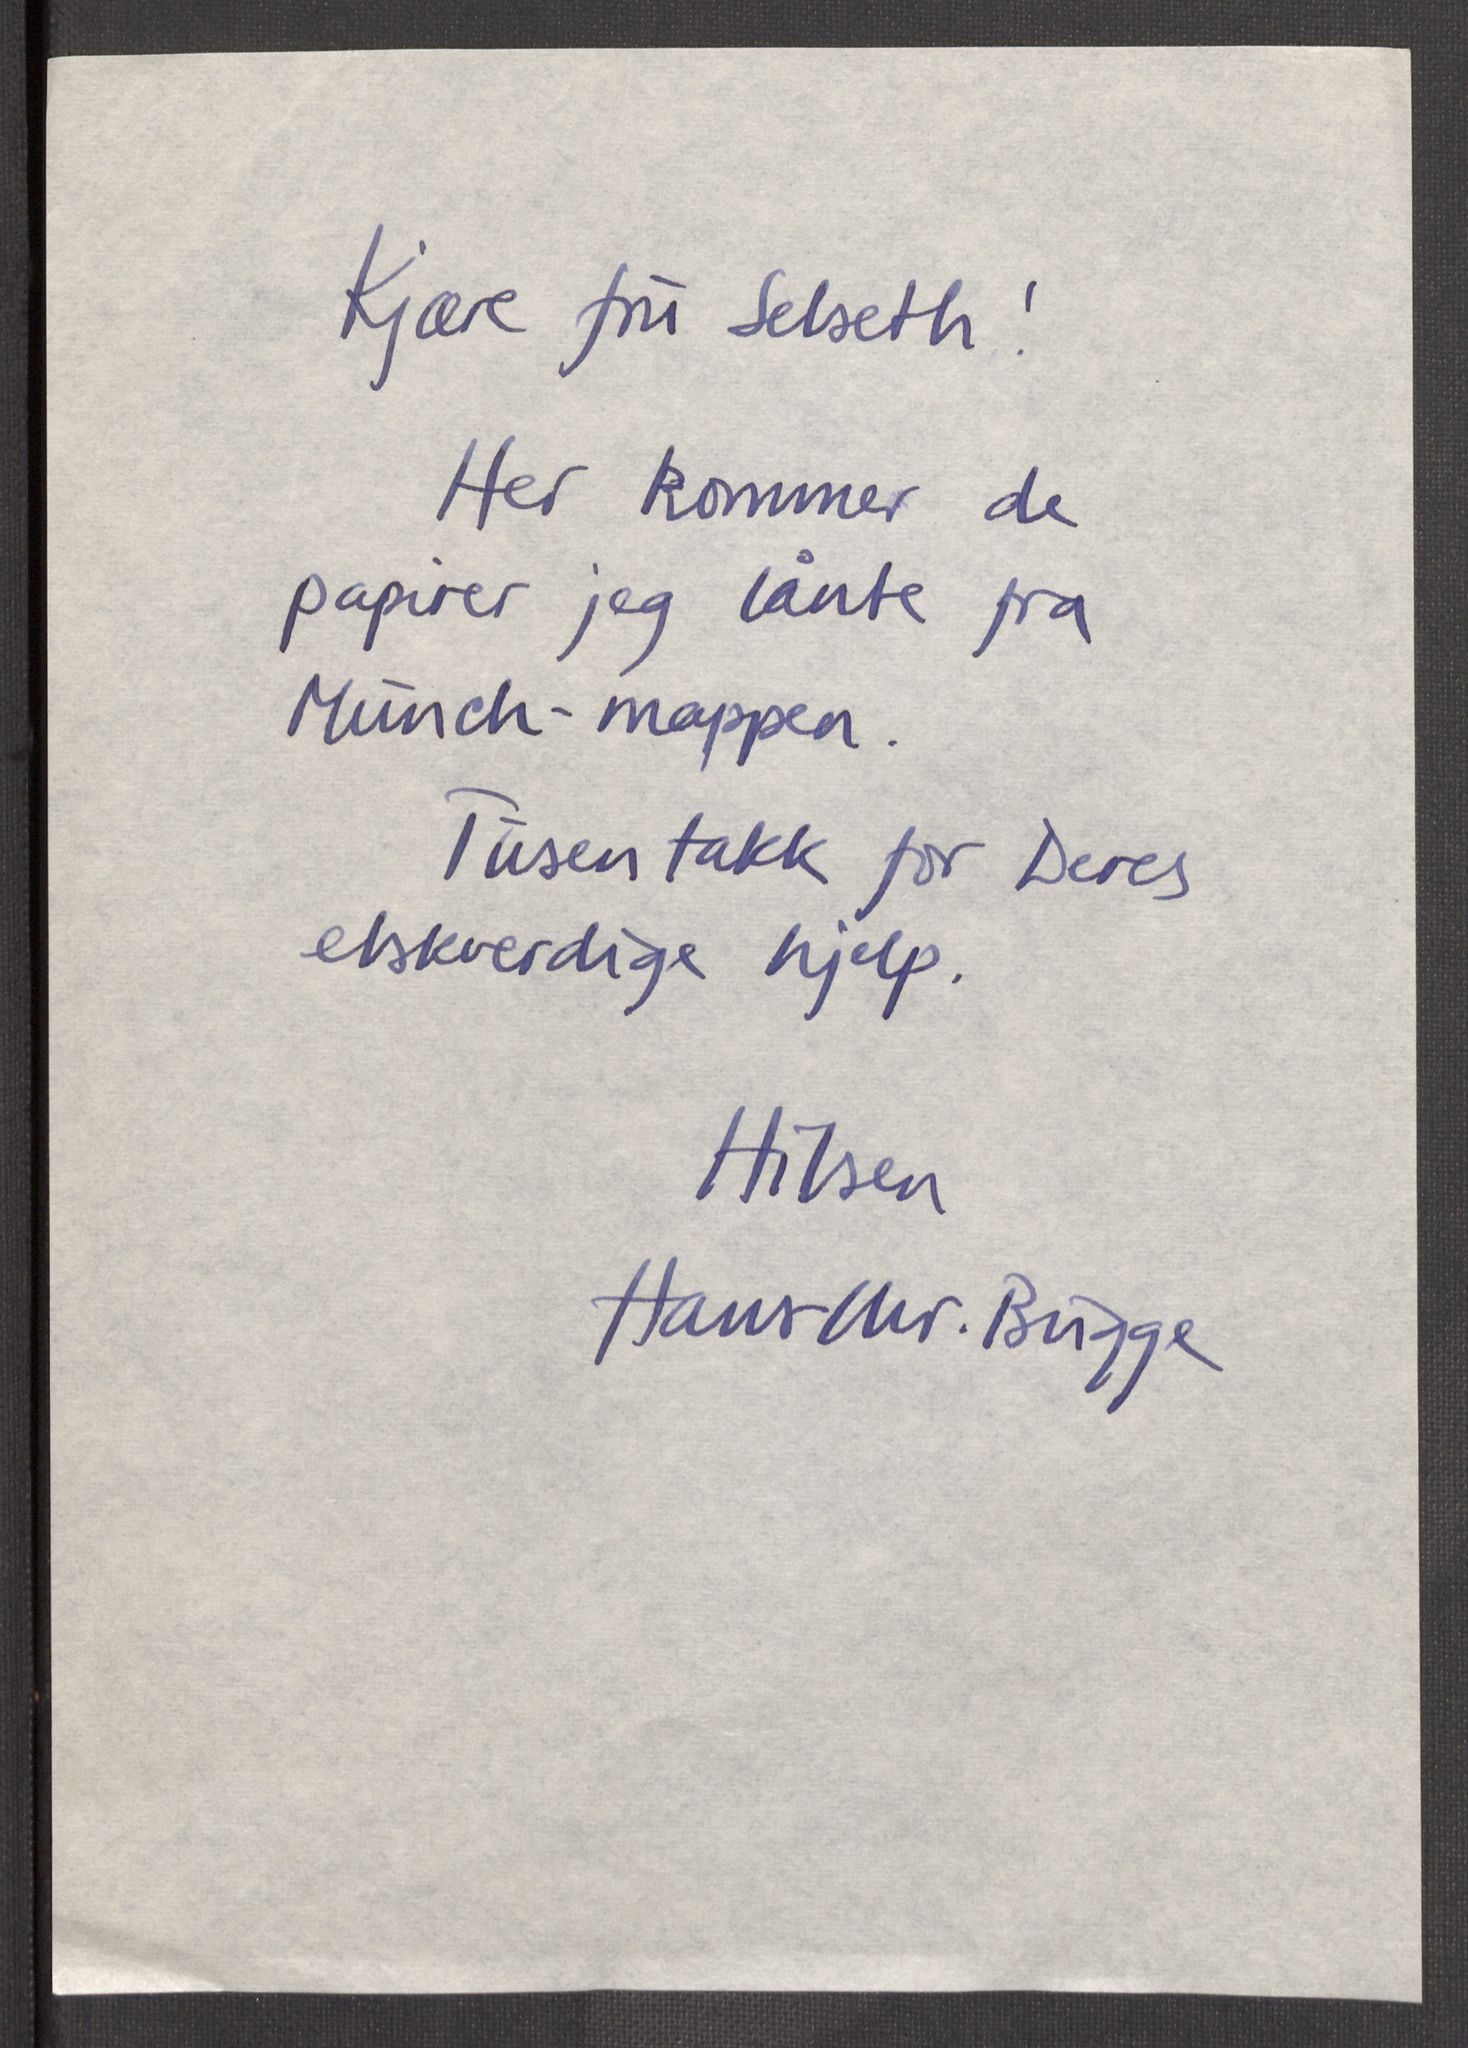 Kjære fru Selseth!
Her kommer de
papirer jeg lånte fra
Munch-mappen.
Tusen takk for Deres
elskverdige hjelp.
Hilsen
Hans Chr. Bugge